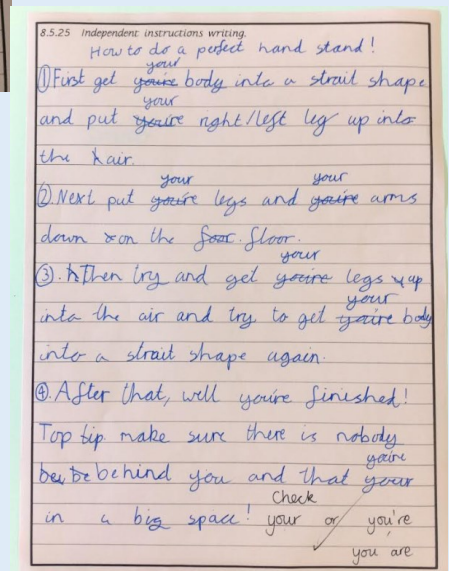 8.5.25 Independent instructions writing.
How to do a perfect hand stand!
your
① First get you're body into a strait shape
your
and put you're right/left leg up into
the hair.
your your
②. Next put you're legs and you're arms
down on the foor. floor.
your
③. Then try and get you're legs up
your
into the air and try to get you're body
into a strait shape again.
④. After that, well you're finished!
Top tip make sure there is nobody
you're
behind you and that your
Check
in a big space! your or you're
you are